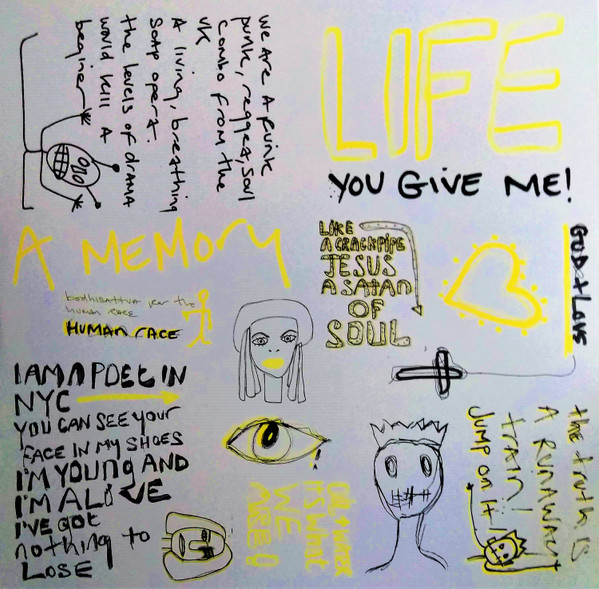 We are a funk
punk, reggea, soul
combo from the
UK
A living, breathing
soap opera.
the levels of drama
would kill a
beginer
LIFE
YOU GIVE ME!
A MEMORY
LIKE
A CRACKPIPE
JESUS
A SATAN
OF
SOUL
GOD + LOVE
bodhisattva for the
human race
HUMAN RACE
I AM A POET IN
NYC
YOU CAN SEE YOUR
FACE IN MY SHOES
I'M YOUNG AND
I'M ALIVE
I'VE GOT
nothing to
LOSE
WATER
IT'S WHAT
WE
ARE
the truth is
A RUNAWAY
train!
Jump on it!